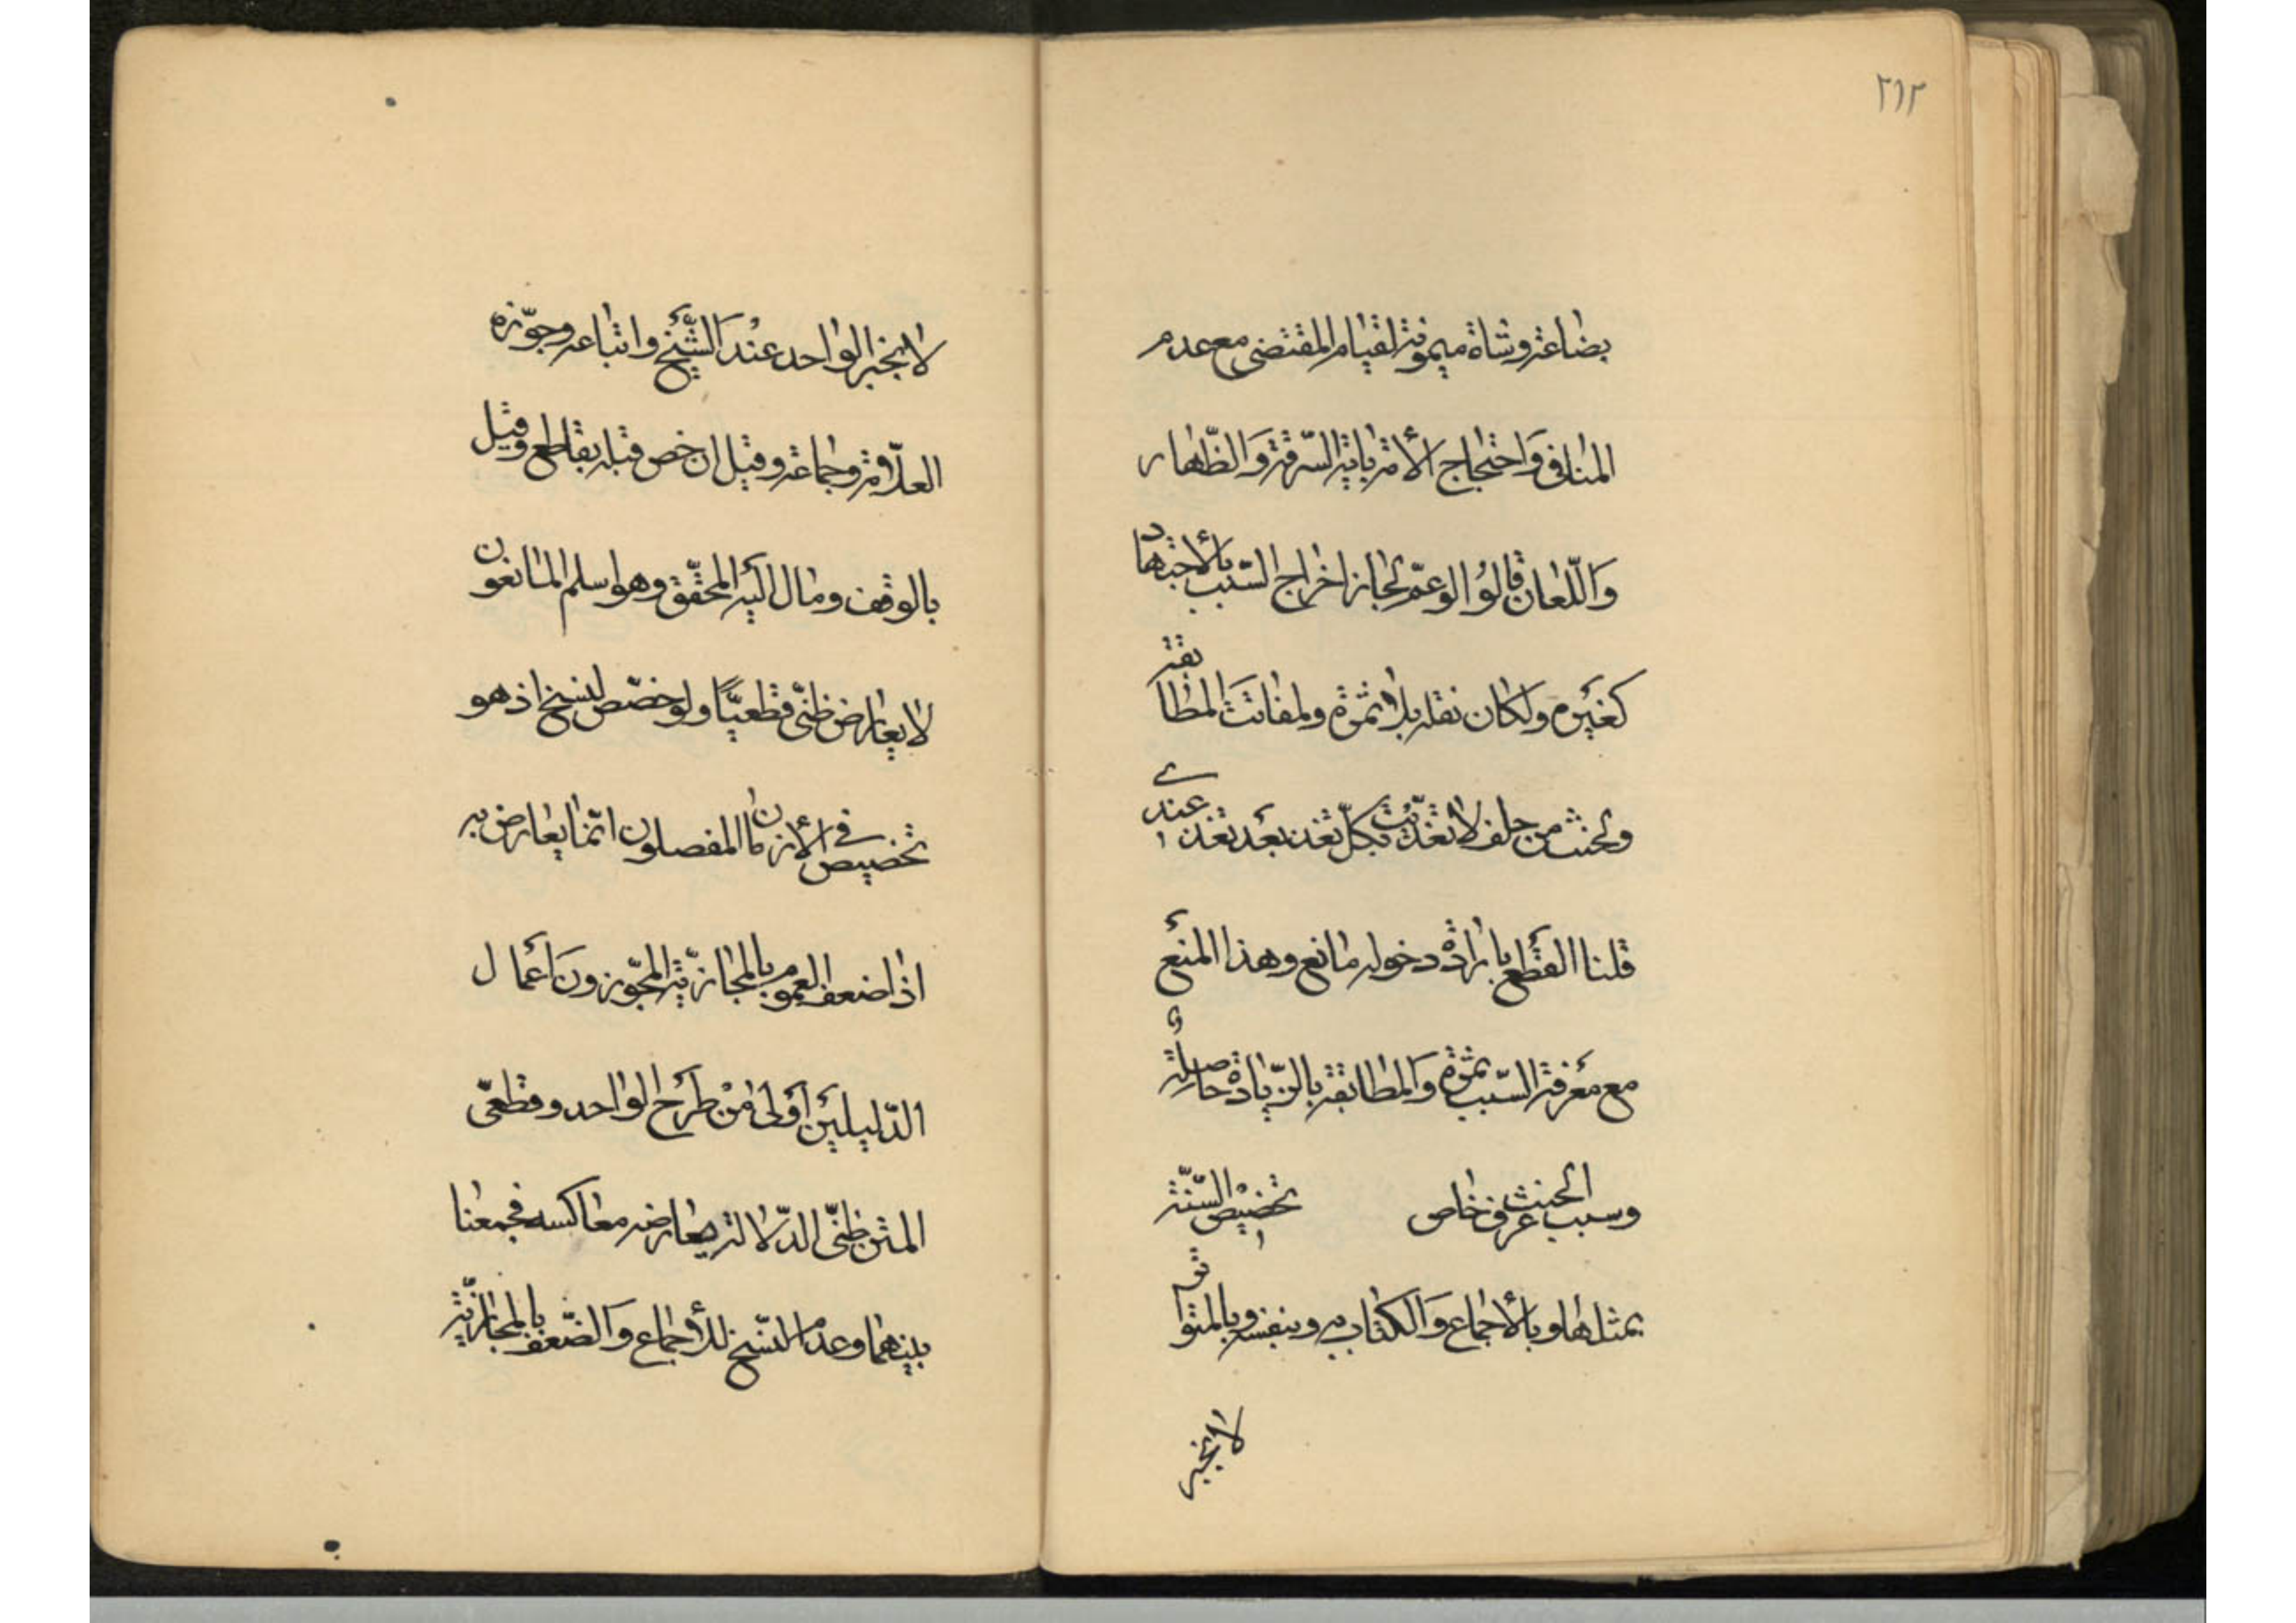 ٢١٢
بضاعة وشاة ميمونة لقيام المقتضي مع عدم
المنافي وَاحتجاج الأمة باية السّرقة وَالظّهار
وَاللّعان قالوُا لو عمّ لجاز اخراج السّبب بالأجتهاد
كغيَره ولكان نقله بلا ثمرة ولفاتَت المطابقة
ولحنث من حلف لا تغدّيْت بكلّ تغد بعَد تغد عندي
قلنا القَطع بارادة دخوله مانع وهذا المنَع
مع مَعرفة السّبب ثمرة وَالمطابقة بالزّيادة حاصلة
وسبب الحنث عرف خاص تخصيص السّنّة
بمثلها وبالأجماع وَالكتاب به وبنفسه وبالمتواتر
لا بخبر
لا بخبر الواحد عنْدَ الشّيَخ واتباعه وجوّزه
العلّامة وجماعة وقيل ان خص قبله بقاطع وقيل
بالوقف ومال اليَه المحقّق وهو اسلم المانعون
لا يعارض ظنّي قطعيّاً ولو خصّص لنسخ اذ هو
تخصيص في الأزمان المفصلون انّما يعارض به
اذا ضعف العموم بالمجازيّة المجوّزون اَعمال
الدّليلَين أوَلى مْن طَرَح الواحد وقطعيّ
المتن ظنّي الدّلالة يعارضه معاكسه فجمعنا
بينهما وعدم النسّخ للأجماع وَالضّعف بالمجازيّة